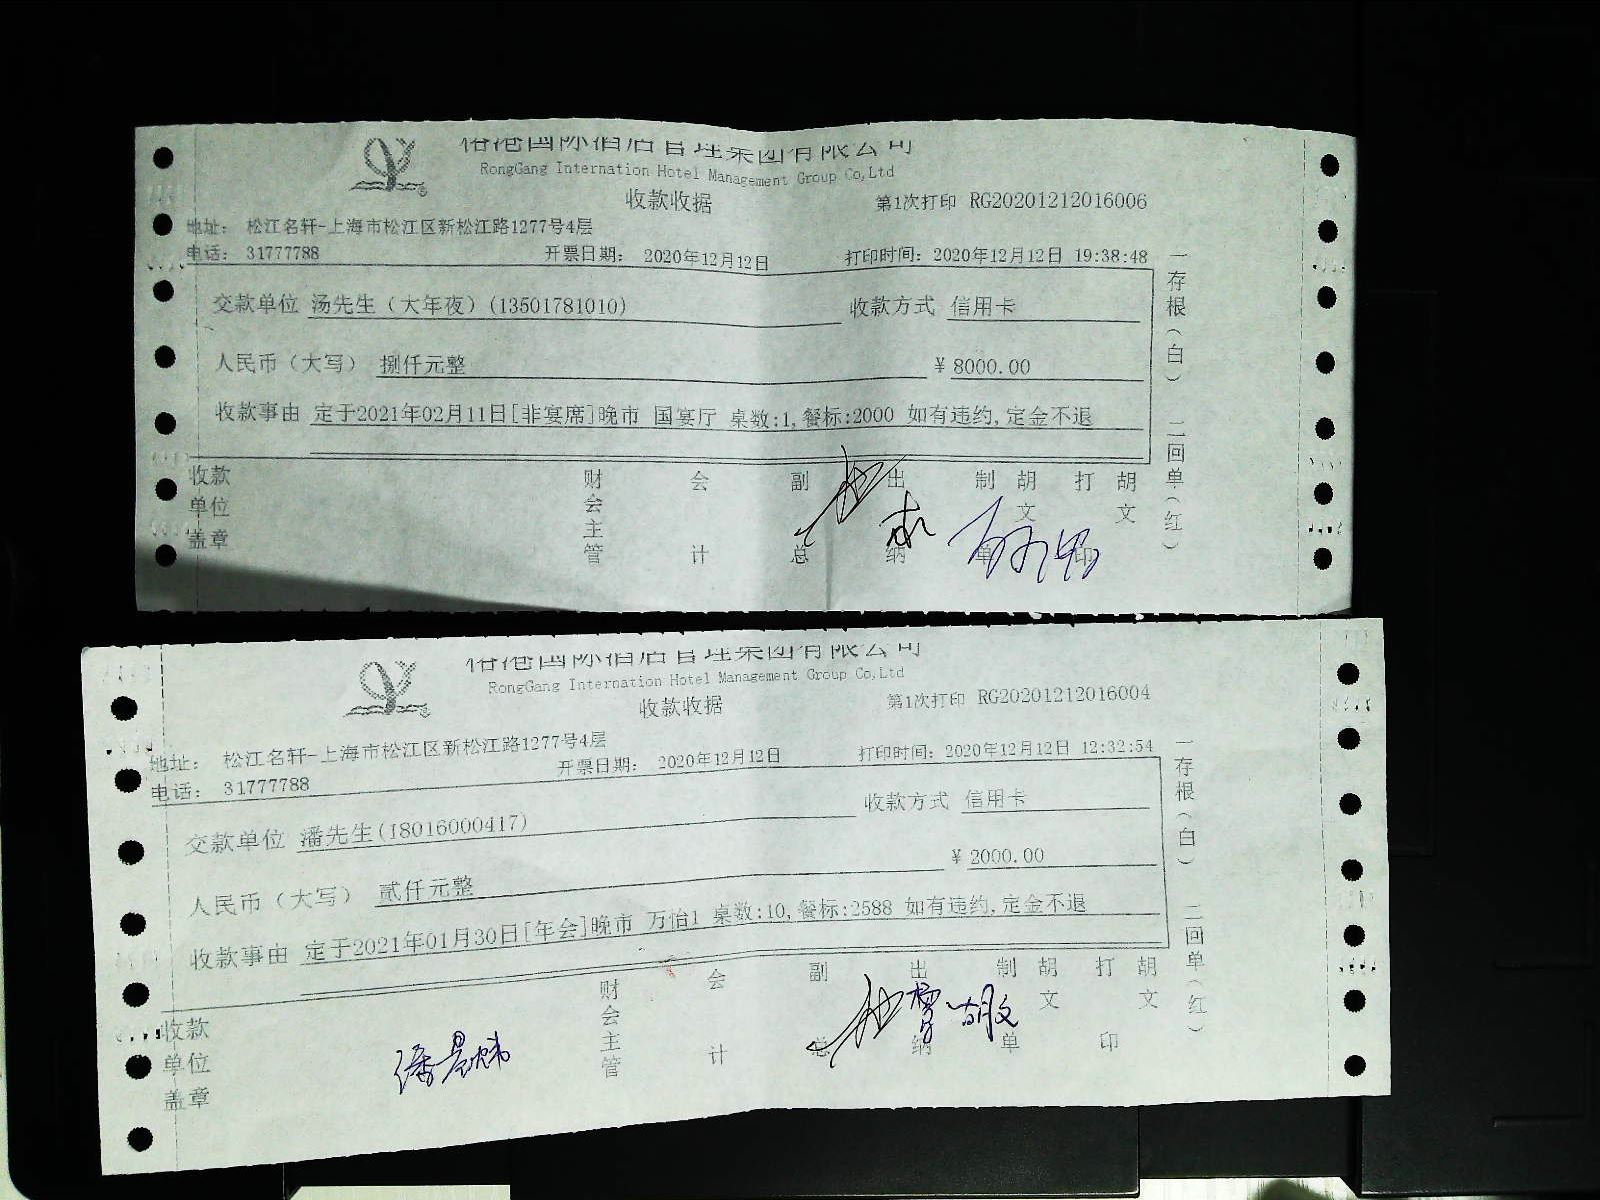 国际酒店管理集团有限公司
RongGang Internation Hotel Management Group Co,Ltd
收款收据
第1次打印 RG20201212016006
地址： 松江名轩-上海市松江区新松江路1277号4层
电话： 31777788
开票日期： 2020年12月12日
打印时间：2020年12月12日 19:38:48
交款单位 汤先生（大年夜）(13501781010)
收款方式 信用卡
人民币（大写） 捌仟元整
¥ 8000.00
收款事由 定于2021年02月11日[非宴席]晚市 国宴厅 桌数:1,餐标:2000 如有违约,定金不退
一存根（白） 二回单（红）
收款单位盖章
财会主管
会计
副总
出纳
制单
胡文
打印
胡文
国际酒店管理集团有限公司
RongGang Internation Hotel Management Group Co,Ltd
收款收据
第1次打印 RG20201212016004
地址： 松江名轩-上海市松江区新松江路1277号4层
电话： 31777788
开票日期： 2020年12月12日
打印时间：2020年12月12日 12:32:54
交款单位 潘先生(18016000417)
收款方式 信用卡
人民币（大写） 贰仟元整
¥ 2000.00
收款事由 定于2021年01月30日[年会]晚市 万怡1 桌数:10,餐标:2588 如有违约,定金不退
一存根（白） 二回单（红）
收款单位盖章
财会主管
会计
副总
出纳
制单
胡文
打印
胡文
胡文